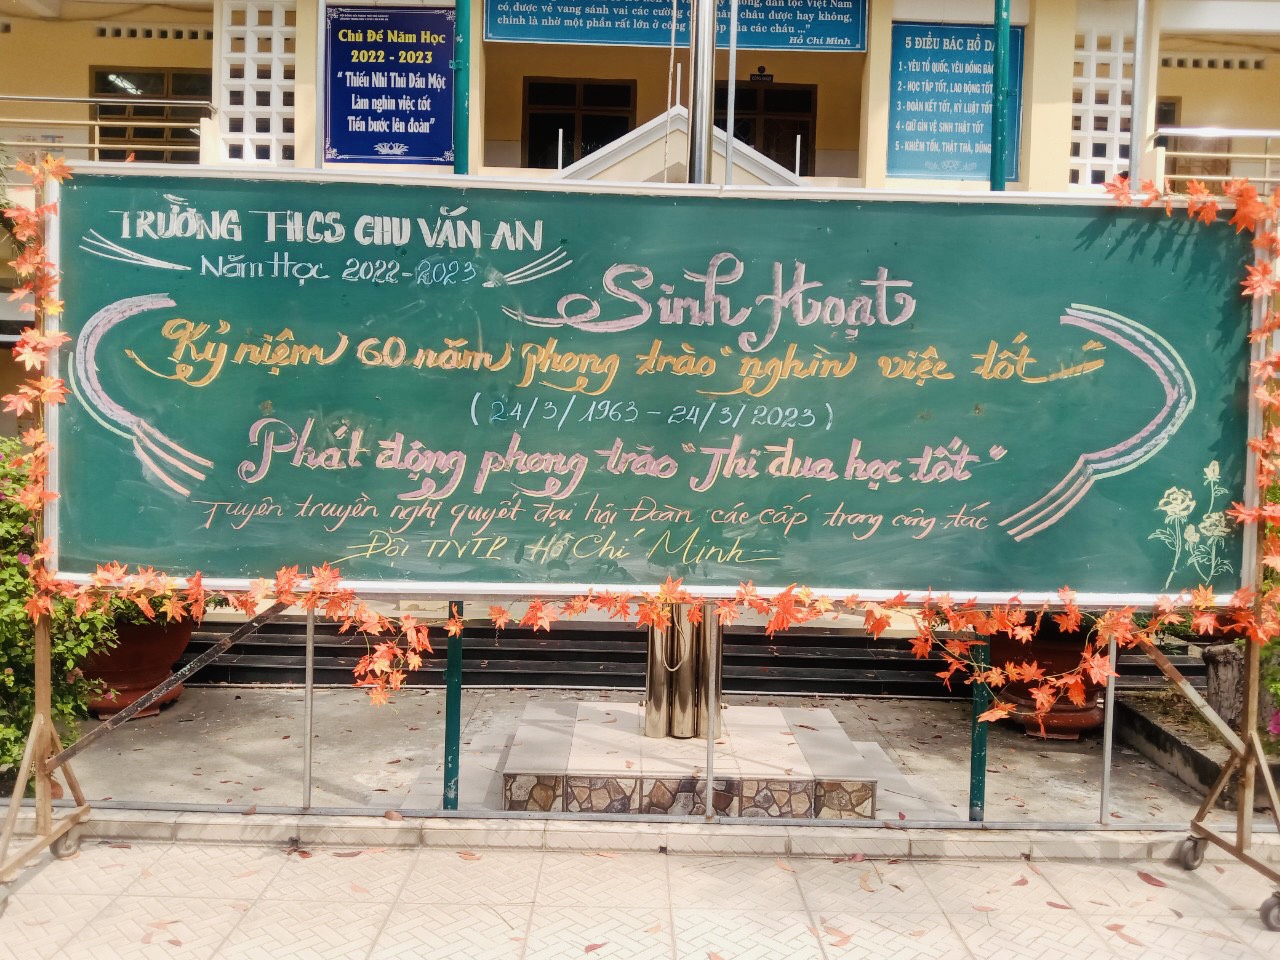 Chủ Đề Năm Học
2022 - 2023
"Thiếu Nhi Thủ Dầu Một
Làm nghìn việc tốt
Tiến bước lên đoàn"
dân tộc Việt Nam
có được vẻ vang sánh vai các cường
châu được hay không,
chính là nhờ một phần rất lớn ở công
của các cháu ..."
Hồ Chí Minh
5 ĐIỀU BÁC HỒ DẠ
1 - YÊU TỔ QUỐC, YÊU ĐỒNG BÀO
2 - HỌC TẬP TỐT, LAO ĐỘNG TỐT
3 - ĐOÀN KẾT TỐT, KỶ LUẬT TỐT
4 - GIỮ GÌN VỆ SINH THẬT TỐT
5 - KHIÊM TỐN, THẬT THÀ, DŨNG
TRƯỜNG THCS CHU VĂN AN
Năm Học 2022-2023
Sinh Hoạt
Kỷ niệm 60 năm phong trào "nghìn việc tốt"
(24/3/1963 - 24/3/2023)
Phát động phong trào "Thi đua học tốt"
Tuyên truyền nghị quyết đại hội Đoàn các cấp trong công tác
Đội TNTP Hồ Chí Minh